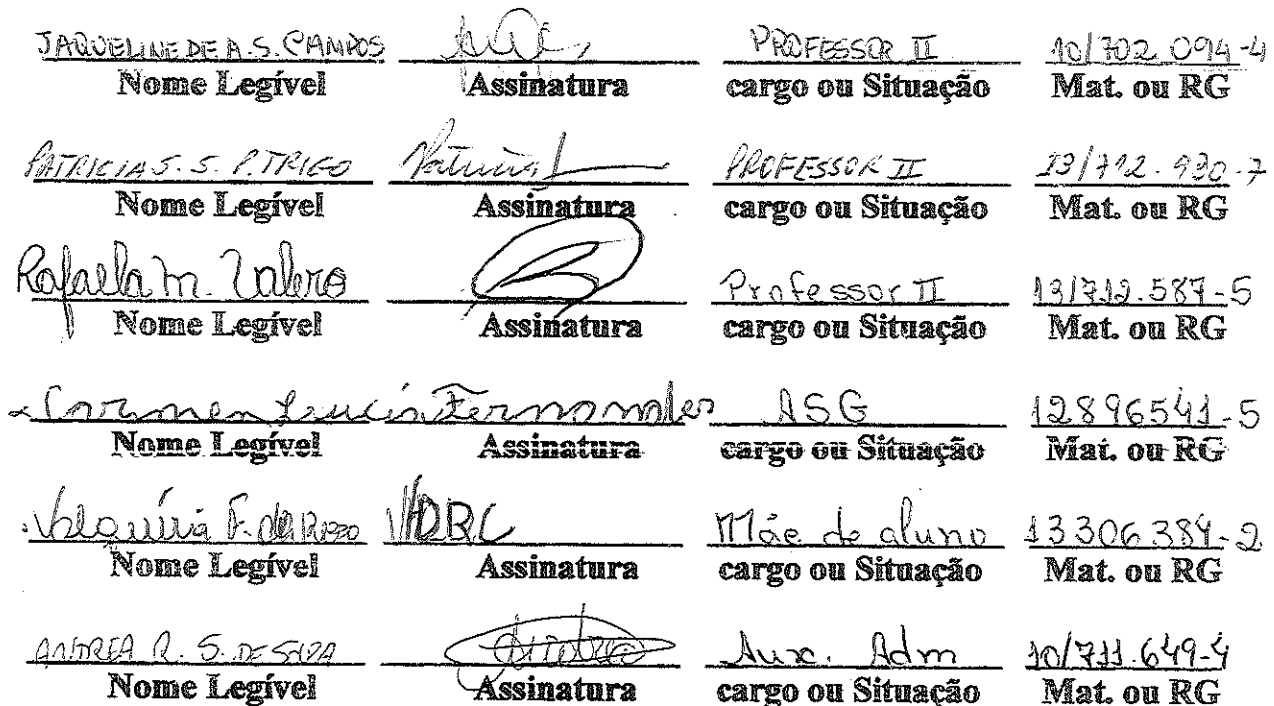 JAQUELINE DE A. S. CAMPOS PROFESSOR II 10/702.094-4
Nome Legível Assinatura cargo ou Situação Mat. ou RG
PATRICIA S. S. P. TRIGO Patricia PROFESSOR II 13/712.930-7
Nome Legível Assinatura cargo ou Situação Mat. ou RG
Rafaella M. Valero Professor II 13/712.587-5
Nome Legível Assinatura cargo ou Situação Mat. ou RG
Carmen Lucia Fernandes ASG 12896541-5
Nome Legível Assinatura cargo ou Situação Mat. ou RG
Valquíria F. Mãe de aluno 13306384-2
Nome Legível Assinatura cargo ou Situação Mat. ou RG
ANDREA R. S. DE Aux. Adm 10/711.649-4
Nome Legível Assinatura cargo ou Situação Mat. ou RG